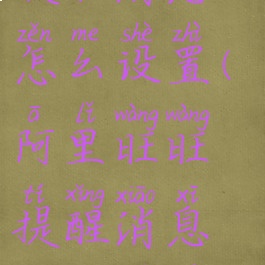 zěn me shè zhì
怎么设置(
ā lǐ wàng wàng
阿里旺旺
tí xǐng xiāo xī
提醒消息